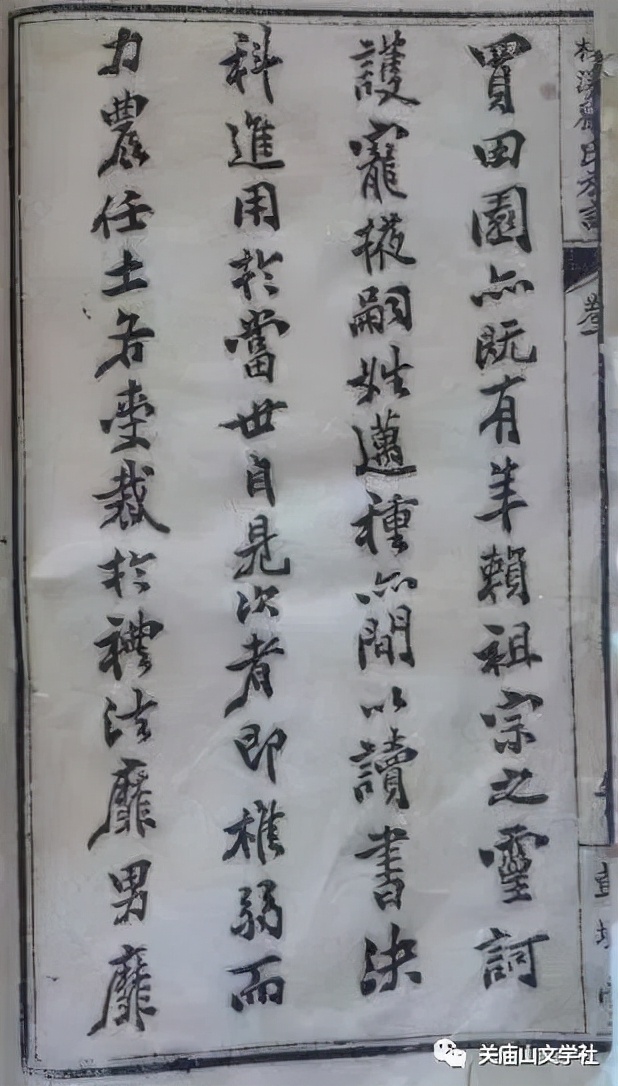 買田園亦既有年賴祖宗之靈訶
護寵掖嗣姓邁種亦間以讀書決
科進用於當世自見次者即椎弱而
力農任土各壹裁於禮法靡男靡
卷一
关庙山文学社